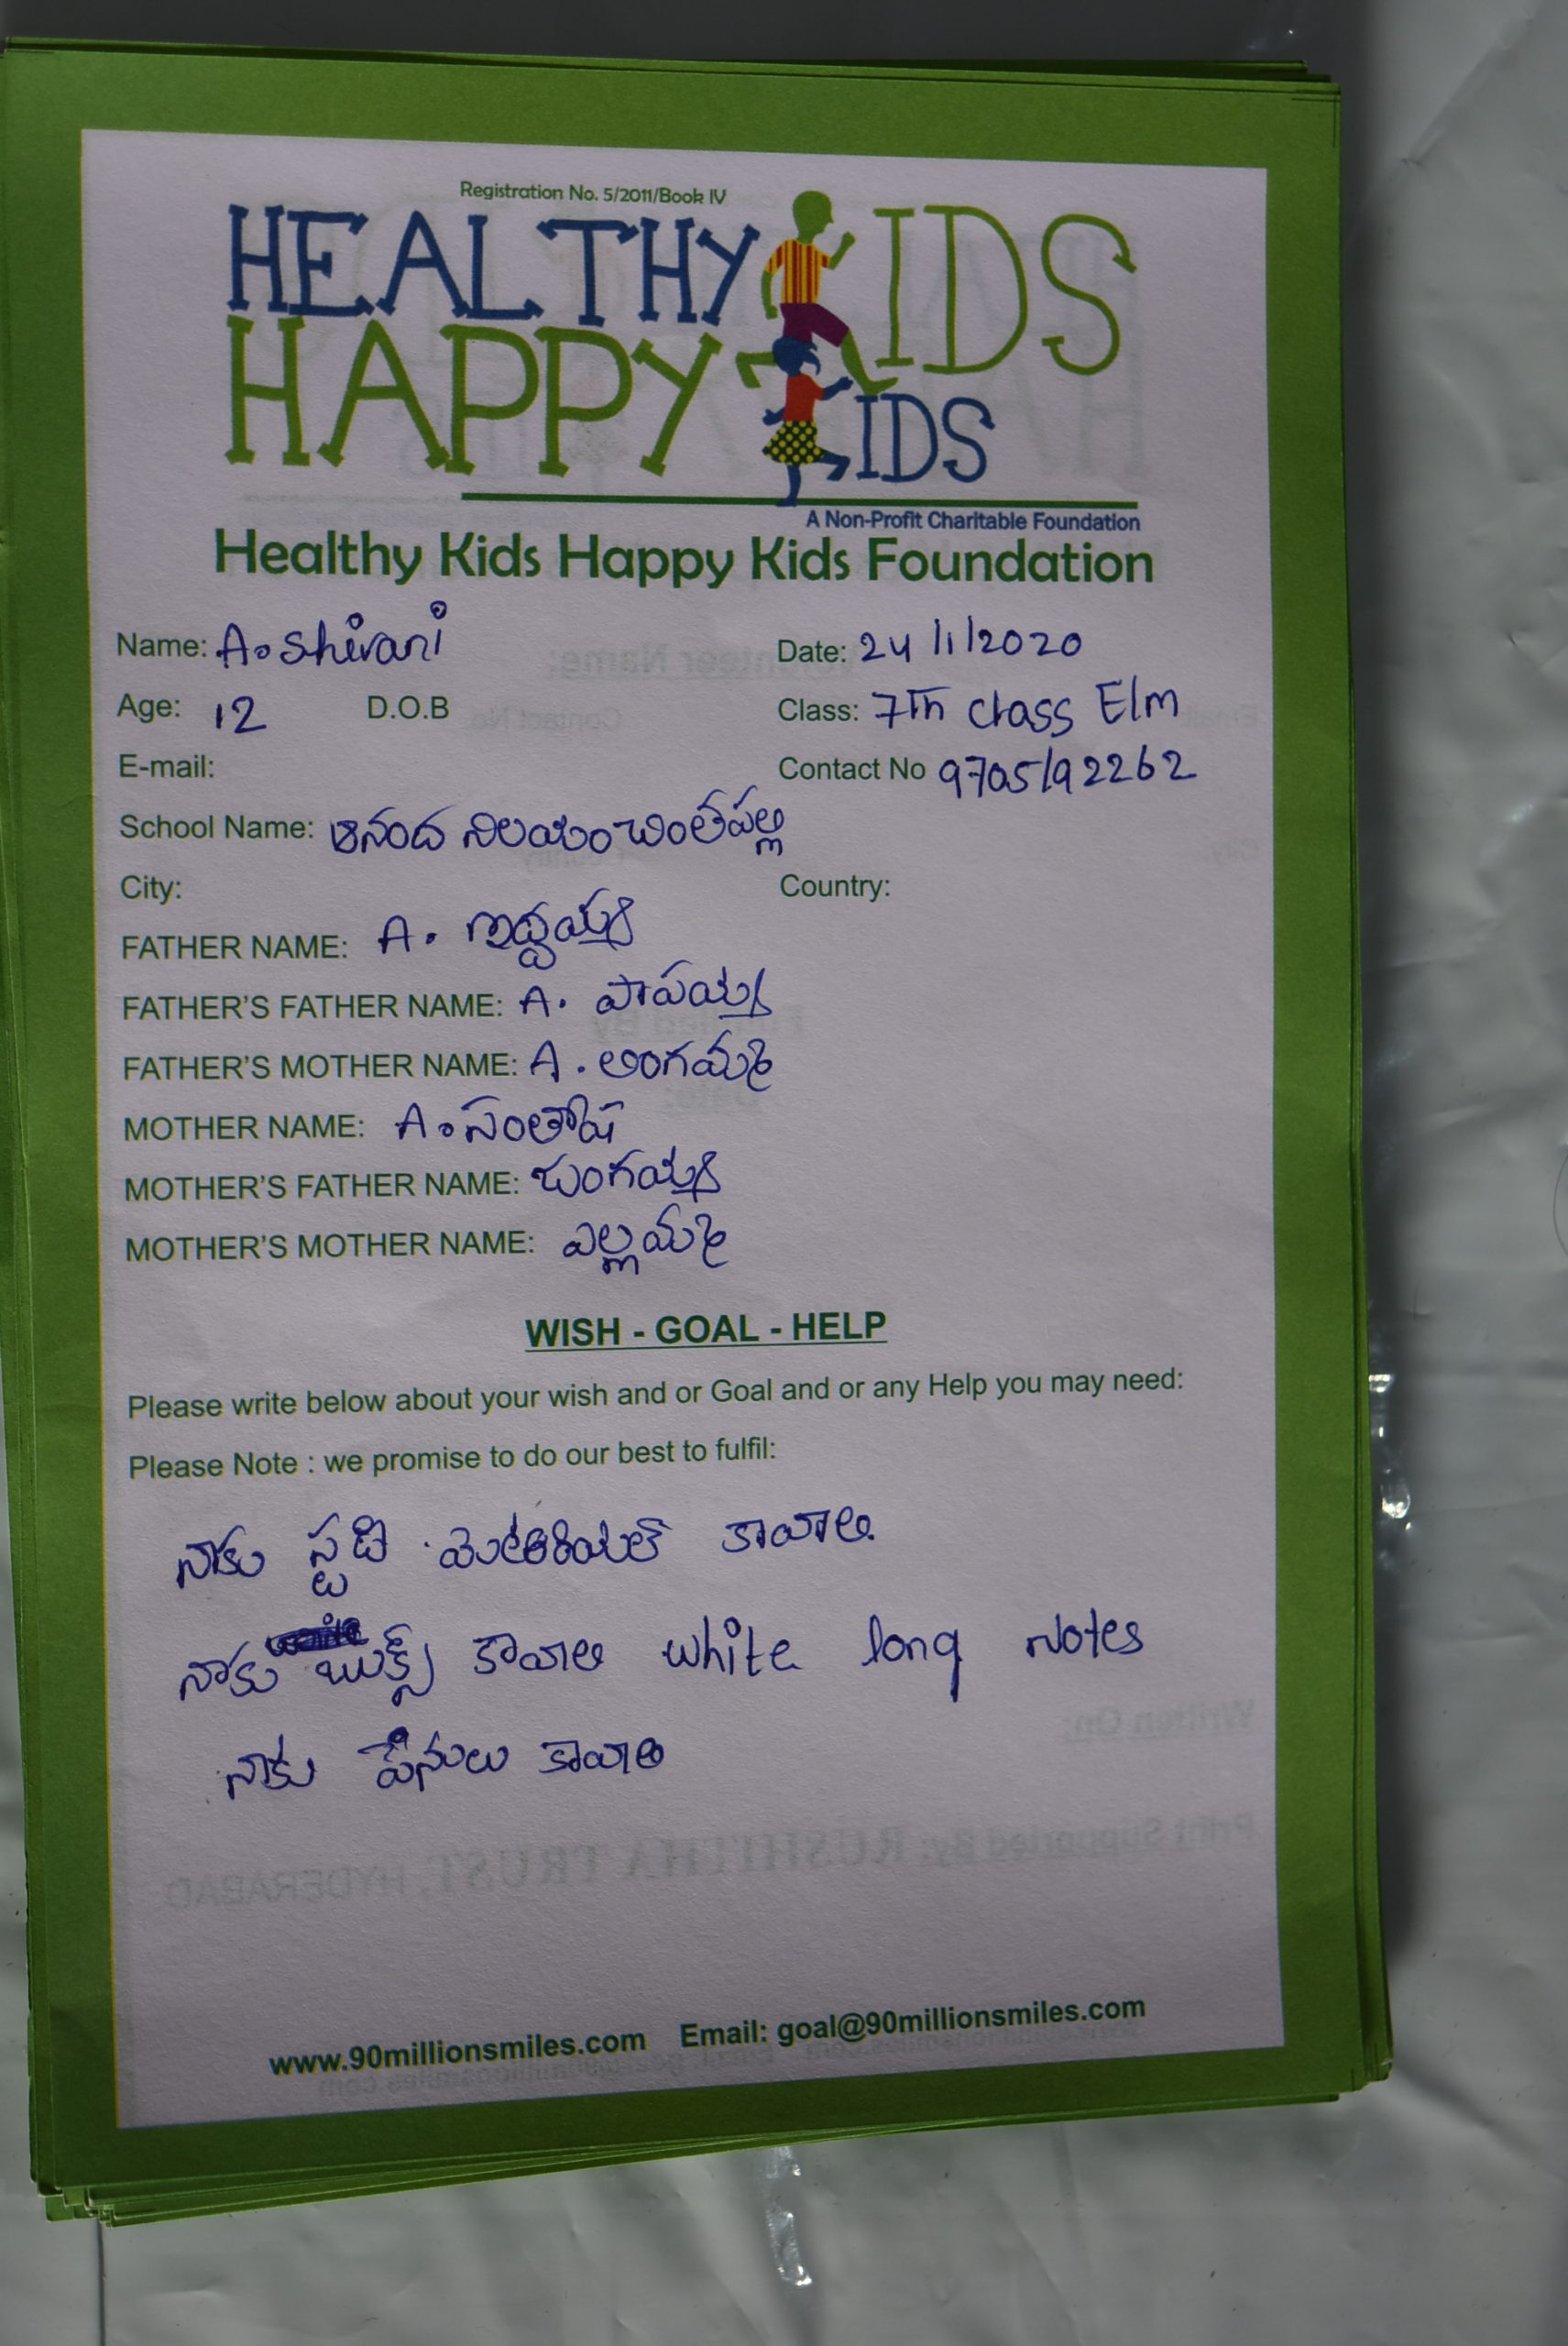 Registration No. 5/2011/Book IV
HEALTHY KIDS
HAPPY KIDS
A Non-Profit Charitable Foundation
Healthy Kids Happy Kids Foundation
Name: A. Shivani Date: 24/1/2020
Age: 12 D.O.B Class: 7Th class Elm
E-mail: Contact No 9705192262
School Name: ఆనంద నిలయం చింతపల్లి
City: Country:
FATHER NAME: A.
FATHER'S FATHER NAME: A. పాపయ్య
FATHER'S MOTHER NAME: A. లింగమ్మ
MOTHER NAME: A. సంతోష
MOTHER'S FATHER NAME:
MOTHER'S MOTHER NAME: ఎల్లమ్మ
WISH - GOAL - HELP
Please write below about your wish and or Goal and or any Help you may need:
Please Note : we promise to do our best to fulfil:
నాకు స్టడి మెటీరియల్ కావాలి.
నాకు బుక్స్ కావాలి white long Notes
నాకు పేనులు కావాలి
www.90millionsmiles.com Email: goal@90millionsmiles.com